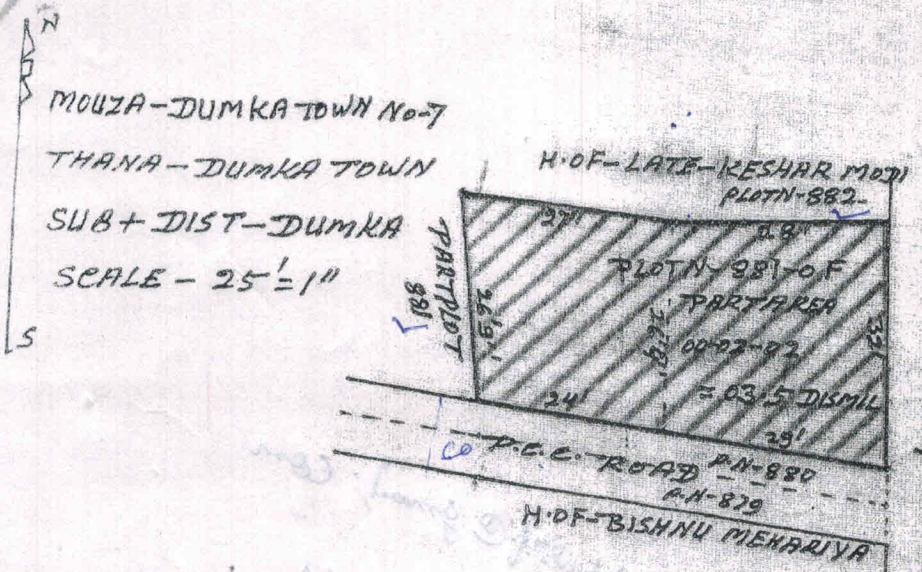 N
MOUZA-DUMKA TOWN No-7
THANA-DUMKA TOWN
SUB + DIST-DUMKA
SCALE - 25' = 1"
S
H.OF-LATE-KESHAR MODI
PLOTN-882
27'
28'
PARTPLOT
881
26'9"
PLOTN-881-OF
PARTAREA
00-02-02
= 03.5 DISMIL
32'
24'
29'
P.C.C. ROAD P.N-880
P.N-879
H.OF-BISHNU MEHARIYA